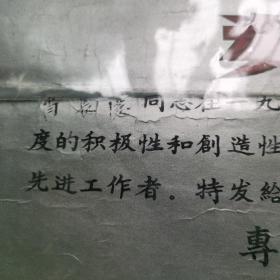 同志在一九
度的积极性和創造性
先进工作者。特发給
專